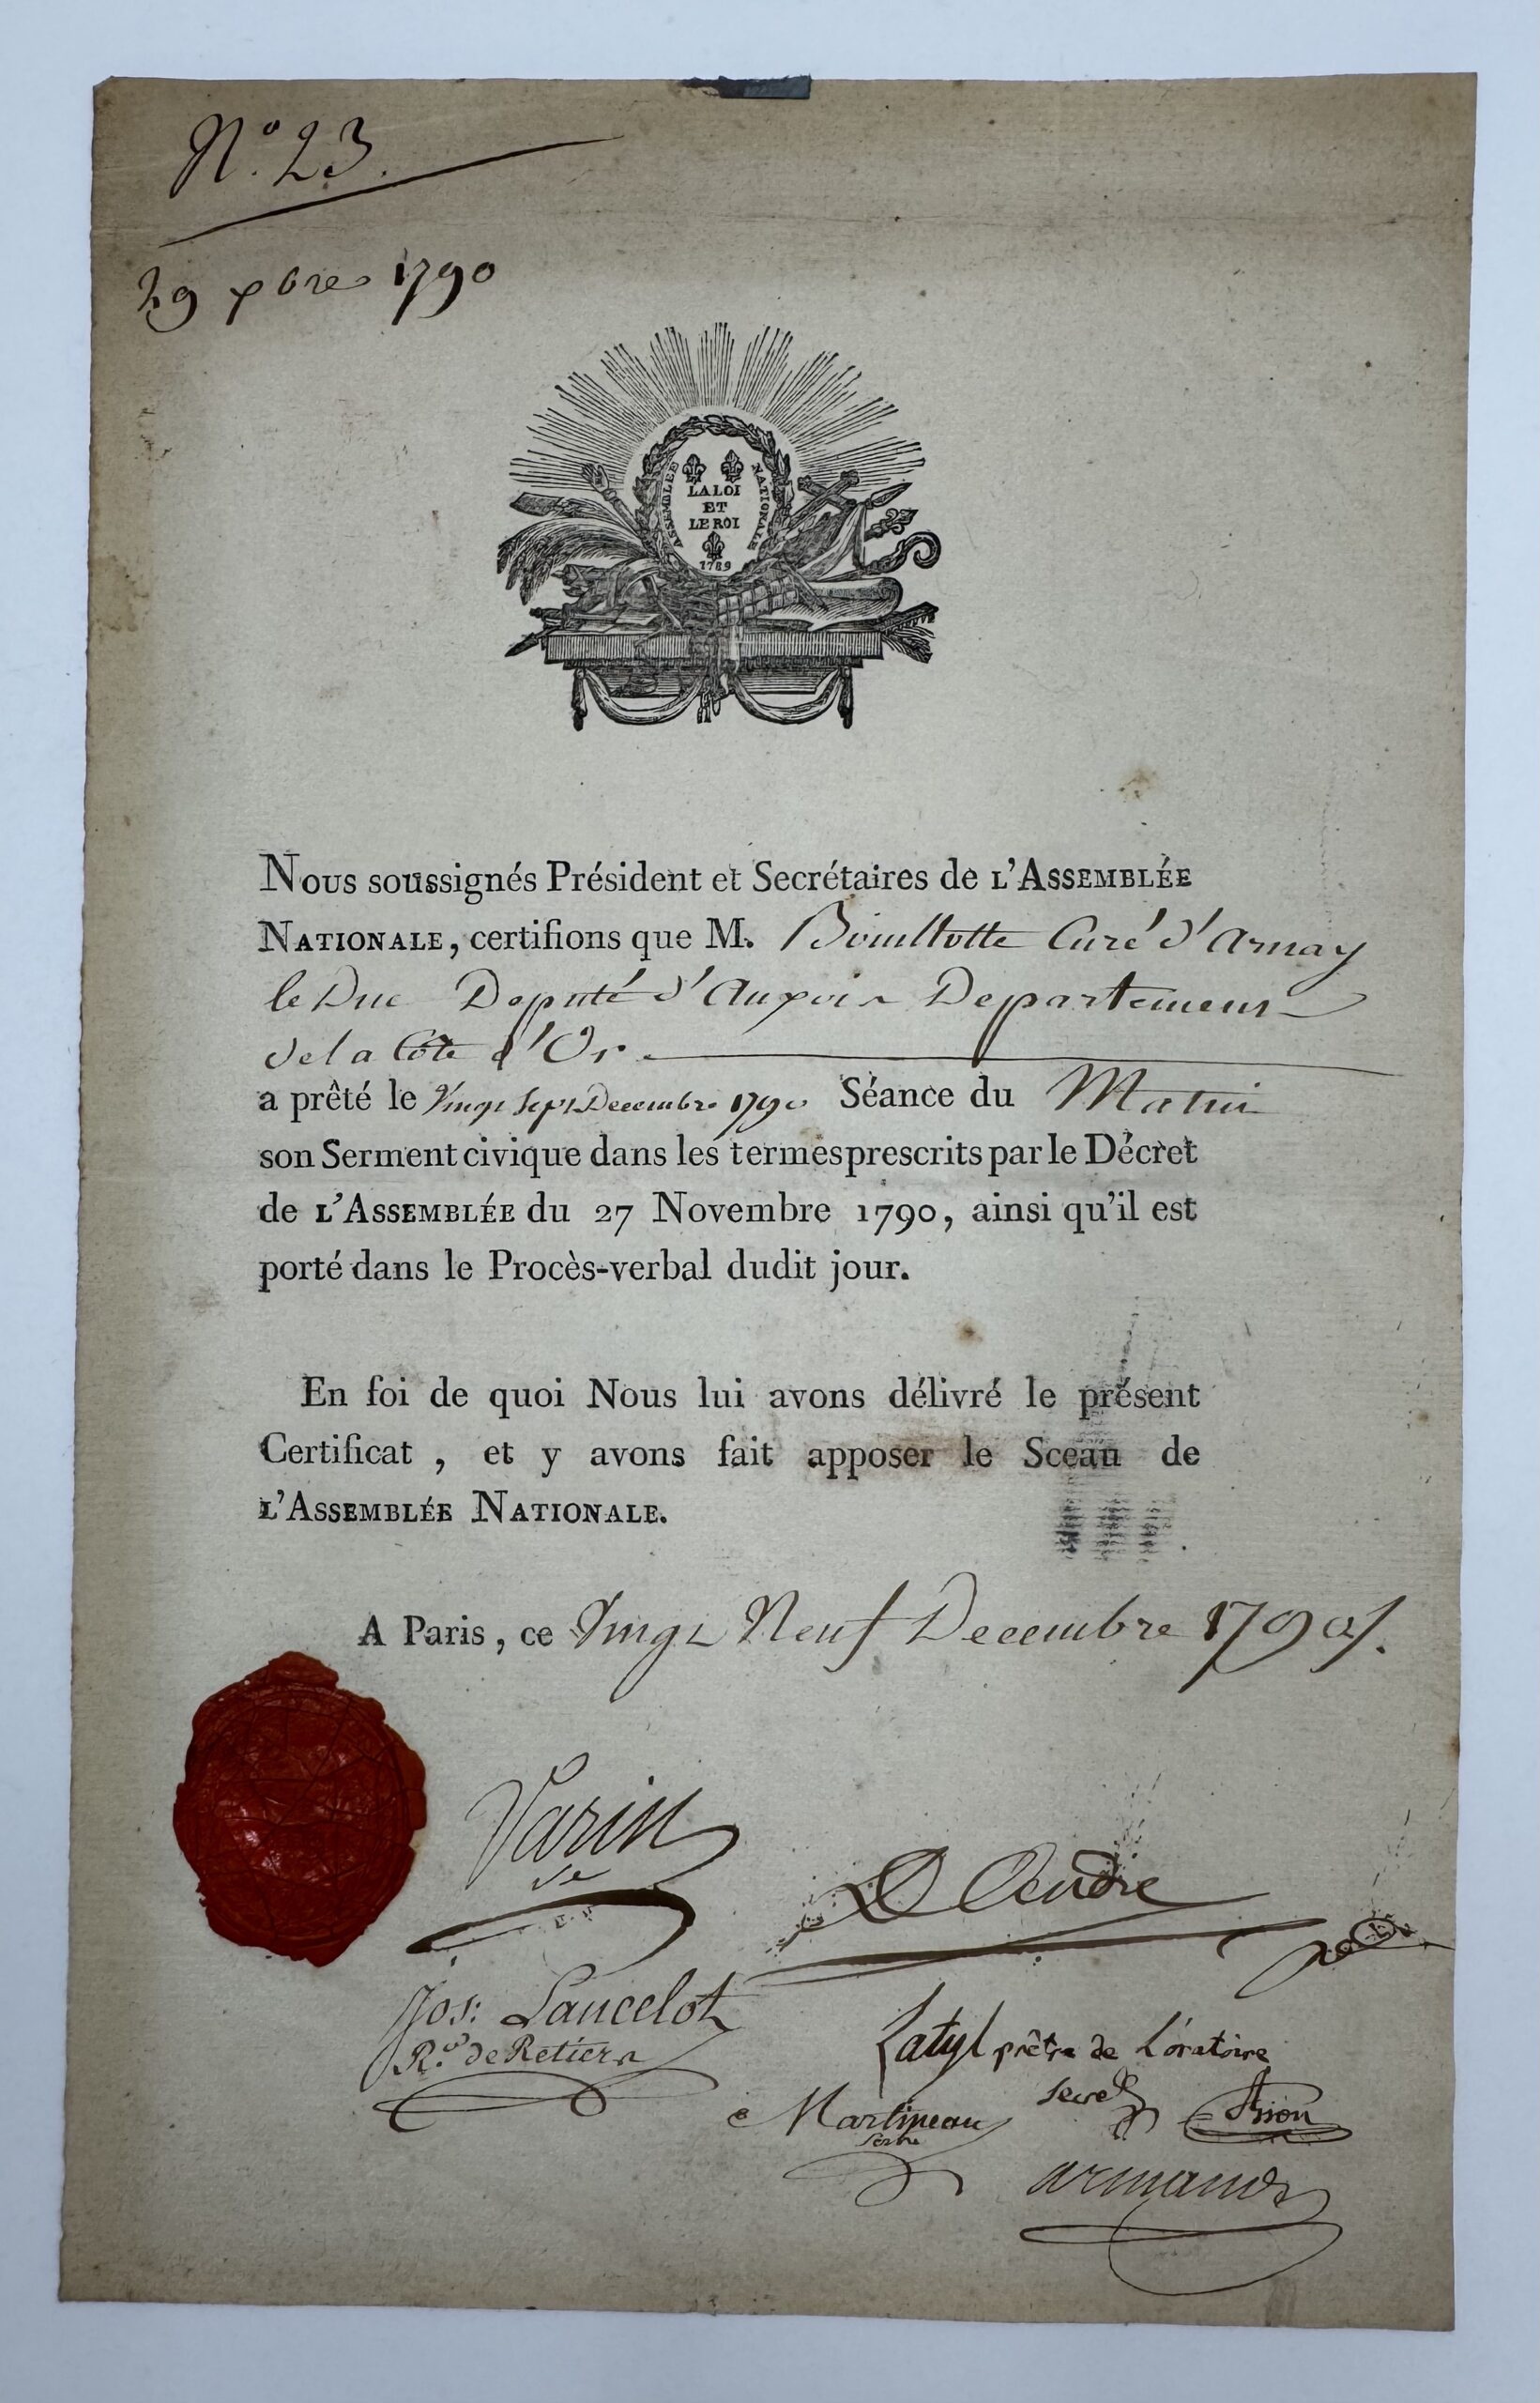 N.º 23.
29 xbre 1790
ASSEMBLÉE NATIONALE
LA LOI
ET
LE ROI
1789
Nous soussignés Président et Secrétaires de l'Assemblée
Nationale, certifions que M. Bouillotte Curé d'Arnay
le Duc Deputé d'Auxois Departement
de la Côte d'Or.
a prêté le Vingt Sept Decembre 1790 Séance du Matin
son Serment civique dans les termes prescrits par le Décret
de l'Assemblée du 27 Novembre 1790, ainsi qu'il est
porté dans le Procès-verbal dudit jour.
En foi de quoi Nous lui avons délivré le présent
Certificat, et y avons fait apposer le Sceau de
l'Assemblée Nationale.
A Paris, ce Vingt Neuf Decembre 1790.
Varin
D André
Jos: Lancelot
R.r de Retiers
Latyl prêtre de L'oratoire
secre
Martineau
armand